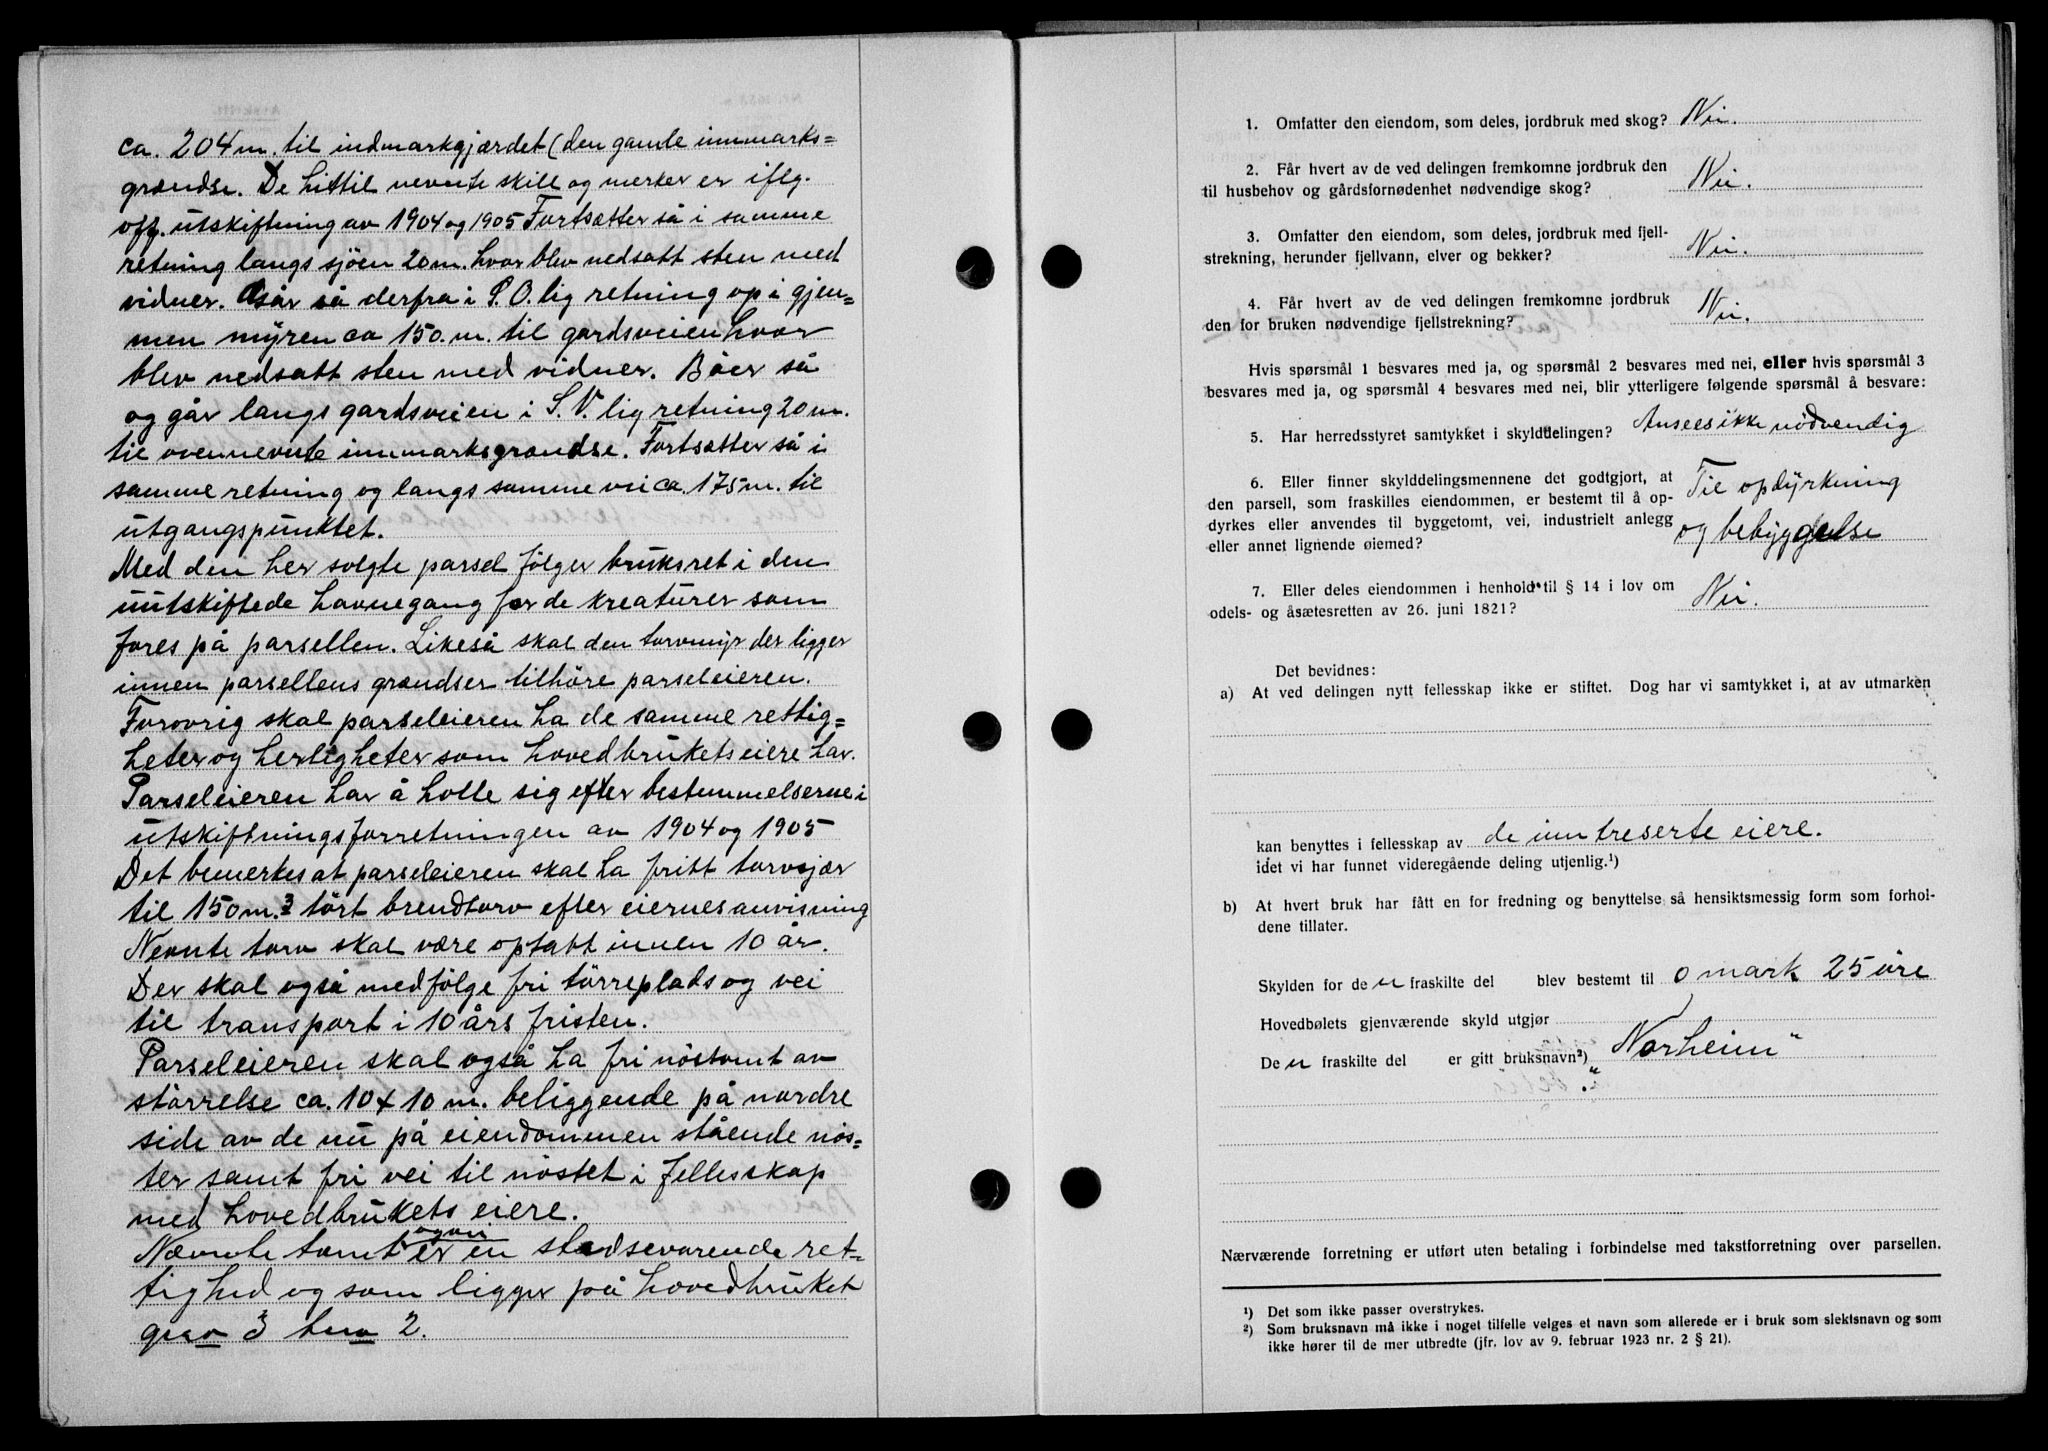 ca. 204 m. til indmarkgjærdet (den gamle innmarks=
grændse. De hittil nevnte skill og merker er iflg.
off. utskiftning av 1904 og 1905 Fortsætter så i samme
retning langs sjöen 20 m. hvor blev nedsatt sten med
vidner. Går så derfra i S.O. lig retning op i gjen=
men myren ca 150. m. til gardsveien hvor
blev nedsatt sten med vidner. Böier så
og går langs gardsveien i S.V. lig retning 20 m.
til ovennevnte innmarksgrændse. Fortsætter så i
samme retning og langs samme vei ca. 175 m. til
utgangspunktet.
Med den her solgte parsel fölger bruksret i den
uutskiftede havnegang for de kreaturer som
fores på parsellen. Likeså skal den torvmyr der ligger
innen parsellens grændser tilhöre parseleieren.
Forövrig skal parseleieren ha de samme rettig=
heter og herligheter som hovedbrukets eiere har.
Parseleieren har å holle sig efter bestemmelserne i
utskiftningsforretningen av 1904 og 1905
Det bemerkes at parseleieren skal ha fritt torvsjær
til 150 m.3 tört brendtorv efter eiernes anvisning
Nevnte torv skal være optatt innen 10 år.
Der skal også medfölge fri törreplads og vei
til transport i 10 års fristen.
Parseleieren skal også ha fri nöstomt av
störrelse ca. 10 x 10 m. beliggende på nordre
side av de nu på eiendommen stående nös=
ter samt fri vei til nöstet i fellesskap
med hovedbrukets eiere.
Nævnte tomt er en stedsevarende ret-
tighed og som ligger på hovedbruket
gno 3 bno 2.
1. Omfatter den eiendom, som deles, jordbruk med skog? Nei.
2. Får hvert av de ved delingen fremkomne jordbruk den
til husbehov og gårdsfornødenhet nødvendige skog? Nei.
3. Omfatter den eiendom, som deles, jordbruk med fjell-
strekning, herunder fjellvann, elver og bekker? Nei.
4. Får hvert av de ved delingen fremkomne jordbruk
den for bruken nødvendige fjellstrekning? Nei.
Hvis spørsmål 1 besvares med ja, og spørsmål 2 besvares med nei, eller hvis spørsmål 3
besvares med ja, og spørsmål 4 besvares med nei, blir ytterligere følgende spørsmål å besvare:
5. Har herredsstyret samtykket i skylddelingen? Ansees ikke nödvendig
6. Eller finner skylddelingsmennene det godtgjort, at
den parsell, som fraskilles eiendommen, er bestemt til å op-
dyrkes eller anvendes til byggetomt, vei, industrielt anlegg
eller annet lignende øiemed? Til opdyrkning
og bebyggelse
7. Eller deles eiendommen i henhold til § 14 i lov om
odels- og åsætesretten av 26. juni 1821? Nei.
Det bevidnes:
a) At ved delingen nytt fellesskap ikke er stiftet. Dog har vi samtykket i, at av utmarken
kan benyttes i fellesskap av de inntreserte eiere.
idet vi har funnet videregående deling utjenlig.¹)
b) At hvert bruk har fått en for fredning og benyttelse så hensiktsmessig form som forhol-
dene tillater.
Skylden for de n fraskilte del blev bestemt til 0 mark 25 öre
Hovedbølets gjenværende skyld utgjør
De n fraskilte del er gitt bruksnavn²) „Norheim"
Nærværende forretning er utført uten betaling i forbindelse med takstforretning over parsellen.
¹) Det som ikke passer overstrykes.
²) Som bruksnavn må ikke i noget tilfelle velges et navn som allerede er i bruk som slektsnavn og som
ikke hører til de mer utbredte (jfr. lov av 9. februar 1923 nr. 2 § 21).